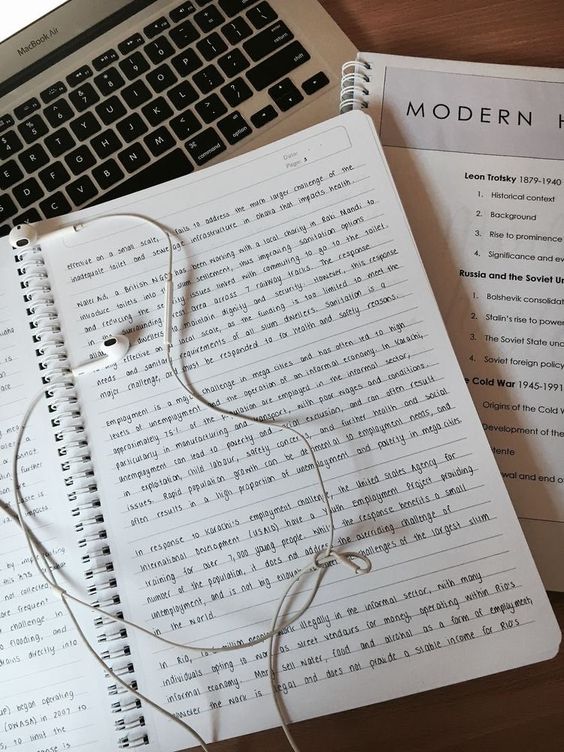 MacBook Air
Date:
Page:
effective on a small scale, it fails to address the much larger challenge of the
inadequate toilet and sewerage infrastructure in Dhaka that impacts health.
Water Aid, a British NGO has been working with a local charity in Rafi Mandi to
introduce toilets into the slum settlement, thus improving sanitation options
and reducing the security issues linked with commuting to go to the toilet
in the surrounding forest area across 7 railway tracks. The response
allows dwellers to maintain dignity and security. However, this response
is only effective on a local scale, as the funding is too limited to meet the
needs and sanitary requirements of all slum dwellers. Sanitation is a
major challenge, and must be responded to for health and safety reasons.
Employment is a major challenge in mega cities and has often led to high
levels of unemployment and the operation of an informal economy. In Karachi,
approximately 75% of the population are employed in the informal sector,
particularly in manufacturing and transport, with poor wages and conditions.
Unemployment can lead to poverty and social exclusion, and can often result
in exploitation, child labour, safety concerns, and further health and social
issues. Rapid population growth can be detrimental to employment needs, and
often results in a high proportion of unemployment and poverty in mega cities
In response to Karachi's employment challenge, the United States Agency for
International Development (USAID) have a Youth Employment Project providing
training for over 7,000 young people. While the response benefits a small
number of the population, it does not address the overriding challenge of
unemployment, and is not big enough challenges of the largest slum
in the world.
In Rio, million people work illegally in the informal sector, with many
individuals opting to work as street vendours for money, operating within Rio's
informal economy. Many sell water, food and alcohol as a form of employment,
however the work is illegal and does not provide a stable income for Rio's
MODERN H
Leon Trotsky 1879-1940
1. Historical context
2. Background
3. Rise to prominence
4. Significance and ev
Russia and the Soviet Un
1. Bolshevik consolidat
2. Stalin's rise to power
3. The Soviet State und
4. Soviet foreign policy
e Cold War 1945-1991
Origins of the Cold W
Development of the
tente
wal and end of